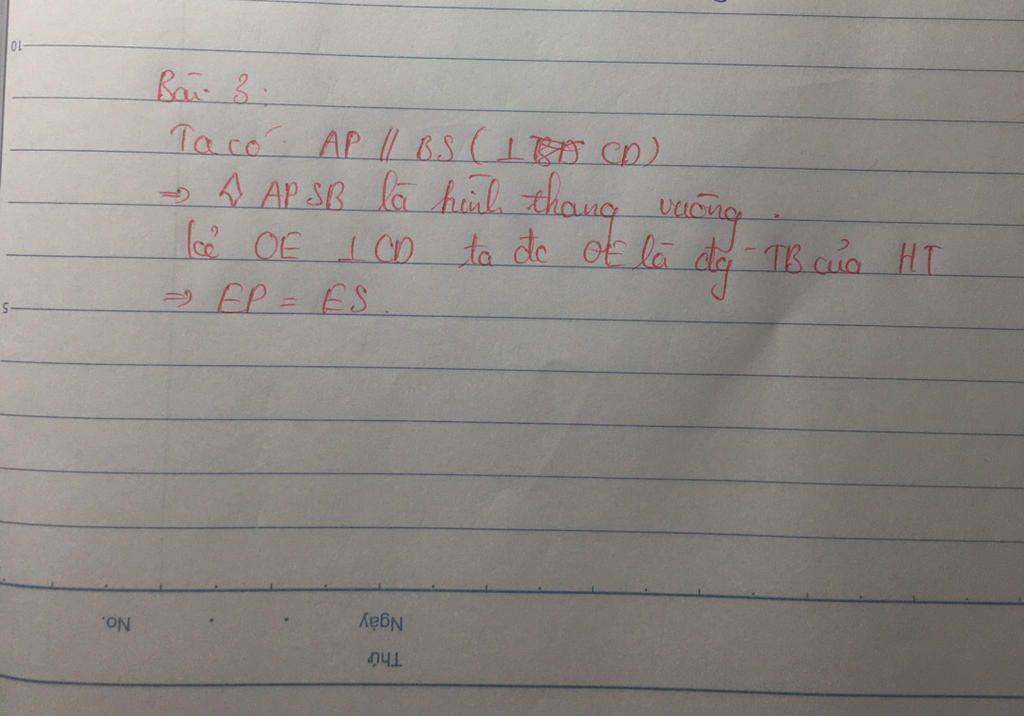 Bài 3:
Ta có AP // BS (⊥ CD)
⇒ ◊ APSB là hình thang vuông.
kẻ OE ⊥ CD ta đc OE là đg TB của HT
⇒ EP = ES.
10
5
No.
Ngày
Thứ